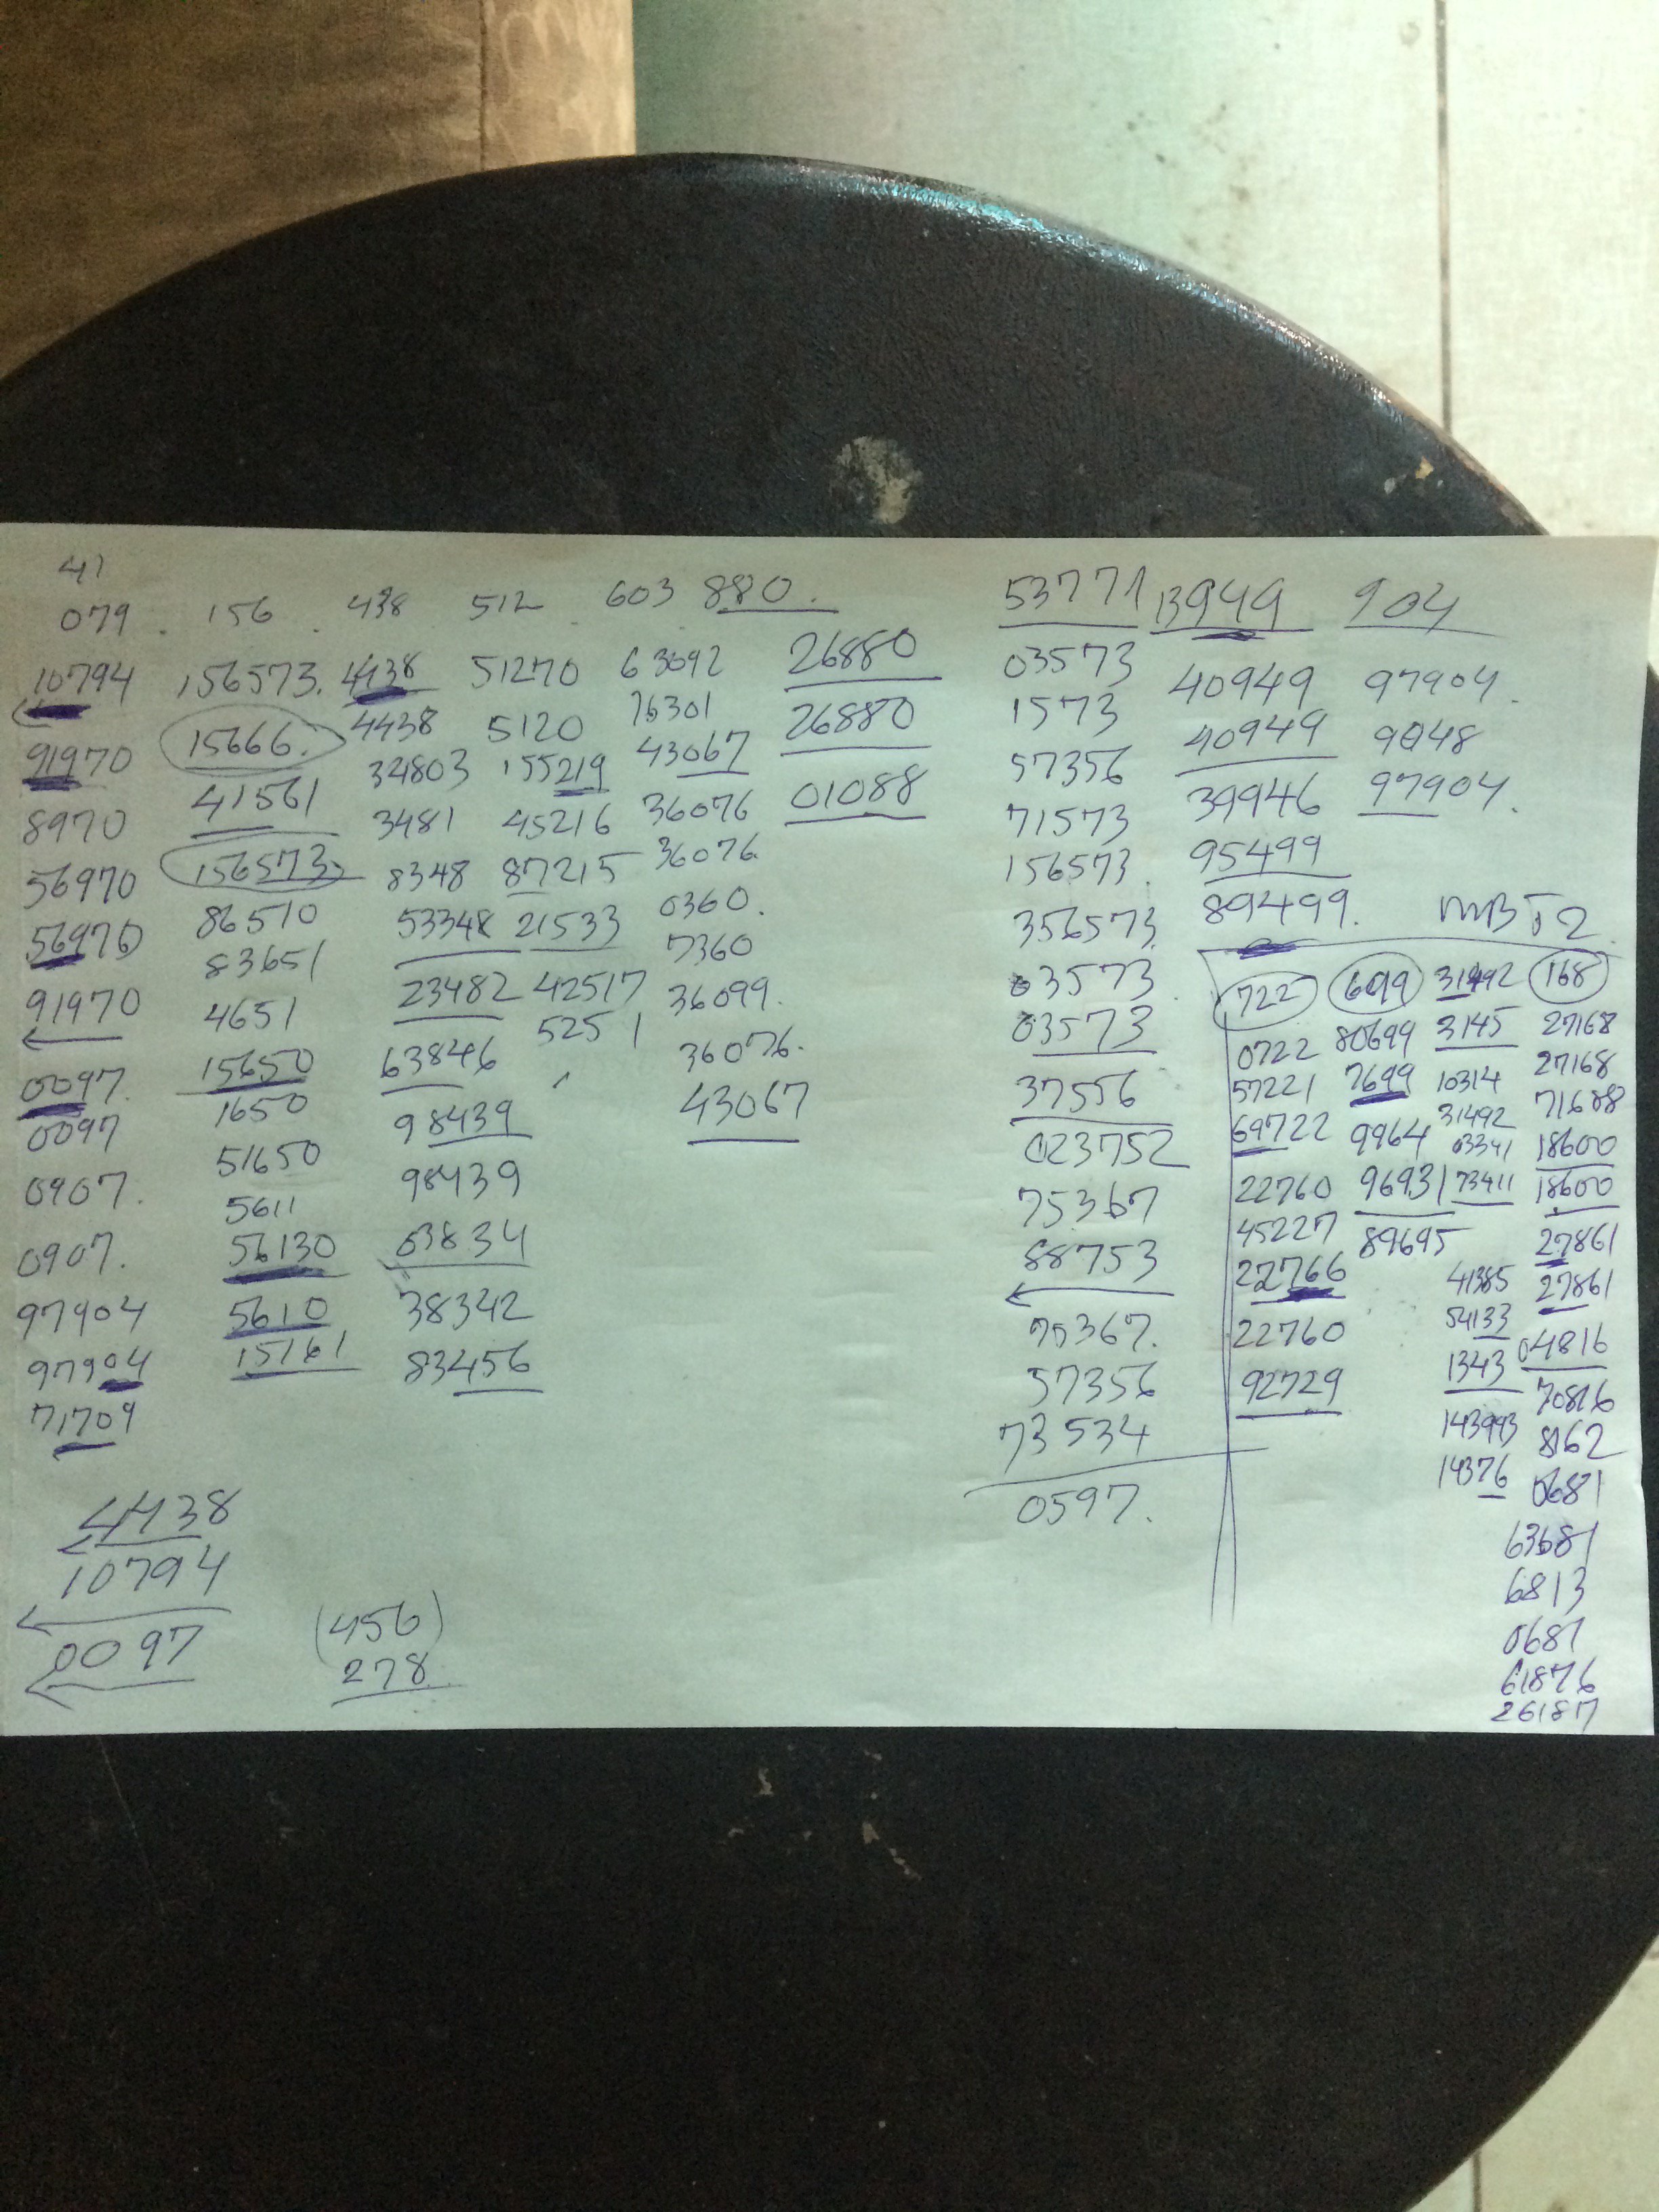 41
079 . 156 . 438 512 . 603 880 . 53771 13949 904
10794 156573. 4438 51270 63092 26880 03573 40949 97904.
91970 15666. 4438 5120 76301 26880 1573 40949 9048
8970 41561 34803 155219 43067 01088 57356 39946 97904.
56970 156573 3481 45216 36076 71573 95499
56970 86510 8348 87215 36076. 156573. 89499. MBT2
91970 83651 53348 21533 0360. 356573.
0097. 4651 23482 42517 7360 03573 722 699 31492 168
0097 15650 63846 5251 36099. 03573 0722 80699 3145 27168
0907. 1650 98439 36076. 37556 57221 7699 10314 27168
0907. 51650 98439 43067 023752 69722 9964 31492 71688
97904 5611 03834 75367 22760 96931 03341 18600
97904 56130 38342 88753 45227 89695 73411 18600
71709 5610 83456 75367. 22766 41385 27861
15161 57356 22760 54133 27861
4438 73534 92729 1343 04816
10794 0597. 143993 70816
0097 (456) 14376 8162
278 0681
63681
6813
0681
61876
26187